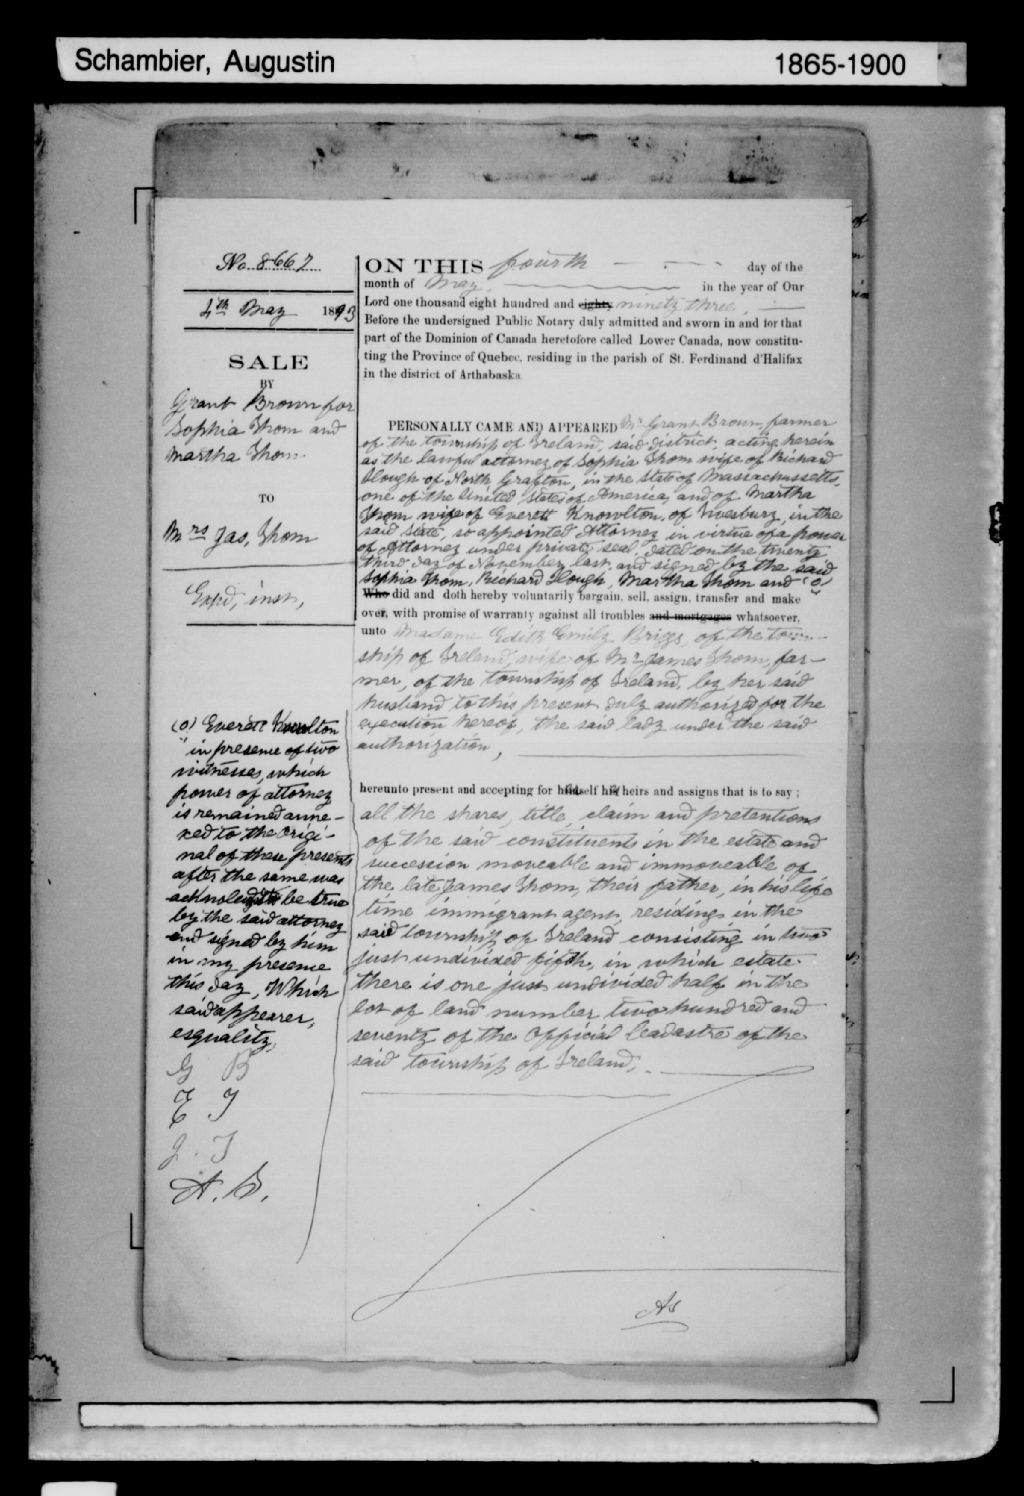 Schambier, Augustin
1865-1900
No. 8667
4th May 1893
SALE
BY
Grant Brown for
Sophia Thom and
Martha Thom
TO
Mrs Jas, Thom
Exp'd, inst,
ON THIS fourth day of the
month of May, in the year of Our
Lord one thousand eight hundred and eighty ninety three,
Before the undersigned Public Notary duly admitted and sworn in and for that
part of the Dominion of Canada heretofore called Lower Canada, now constitu-
ting the Province of Quebec, residing in the parish of St. Ferdinand d'Halifax
in the district of Arthabaska
PERSONALLY CAME AND APPEARED Mr Grant Brown, farmer
of the township of Ireland, said district, acting herein
as the lawful attorney of Sophia Thom wife of Richard
Slough of North Grafton, in the state of Massachussetts,
one of the United States of America, and of Martha
Thom wife of Everett Knowlton, of in the
said State, so appointed Attorney in virtue of a power
of Attorney under private seal dated on the twenty
third day of November last and signed by the said
Sophia Thom, Richard Slough, Martha Thom and (o)
Who did and doth hereby voluntarily bargain, sell, assign, transfer and make
over, with promise of warranty against all troubles and mortgages whatsoever,
unto Madame Edith Emily Briggs, of the town-
ship of Ireland, wife of Mr James Thom, far-
mer, of the township of Ireland, by her said
husband to this present duly authorized for the
execution hereof, the said lady under the said
authorization,
hereunto present and accepting for himself his heirs and assigns that is to say ;
all the shares, title, claim and pretentions
of the said constituents in the estate and
succession moveable and immoveable of
the late James Thom, their father, in his life
time immigrant agent, residing in the
said township of Ireland consisting in two
just undivided fifth, in which estate
there is one just undivided half in the
lot of land number two hundred and
seventy of the Official Cadastre of the
said township of Ireland,
(o) Everett Knowlton
in presence of two
witnesses, which
power of attorney
is remained anne-
xed to the origi-
nal of these presents
after the same was
acknoledged to be true
by the said attorney
and signed by him
in my presence
this day, Which
said appearer,
esquality,
G B
E T
J. T
A. B.
As